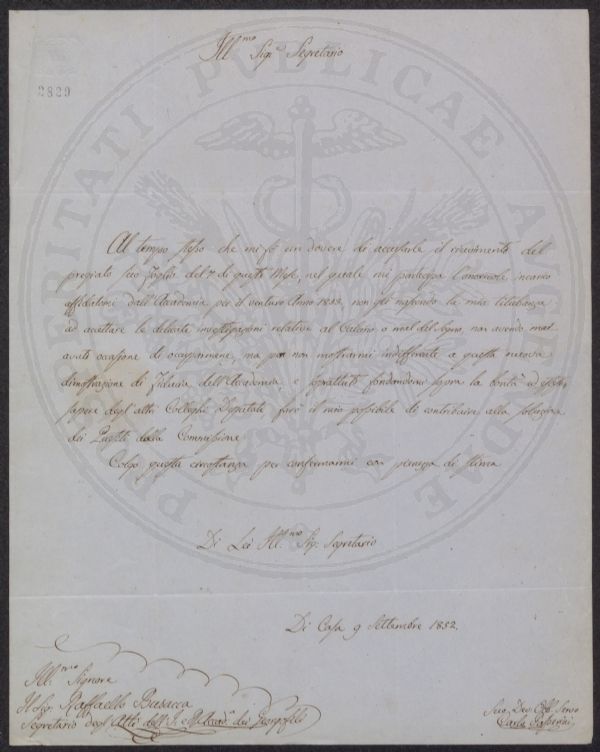 Ill.mo Sig.e Segretario
2829
Al tempo stesso che mi fò un dovere di accusarle il ricevimento del
pregiato suo foglio del 7 di questo Mese, nel quale mi partecipa l'onorevole incarico
affidatomi dall'Accademia per il venturo Anno 1853, non gli nascondo la mia titubanza
ad accettare le delicate investigazioni relative al Calcino o mal del Segno, non avendo mai
avuto occasione di occuparmene, ma per non mostrarmi indifferente a questa nuova
dimostrazione di fiducia dell'Accademia e soprattutto fondandomi sopra la bontà ed
sapere degli altri Colleghi Deputati farò il mio possibile di contribuire alla soluzione
dei Quesiti della Commissione
Colgo questa circostanza per confermarmi con pienezza di stima
Di Lei Ill.mo Sig. Segretario
Di Casa 9 Settembre 1852.
Ill.mo Signore
Il Sig. Raffaello Busacca
Segretario degli Atti dell' I. e R. Accad. dei Georgofili
Suo Dev. Obb. Servo
Carlo Passerini
PROSPERITATI PUBLICAE AUGENDAE